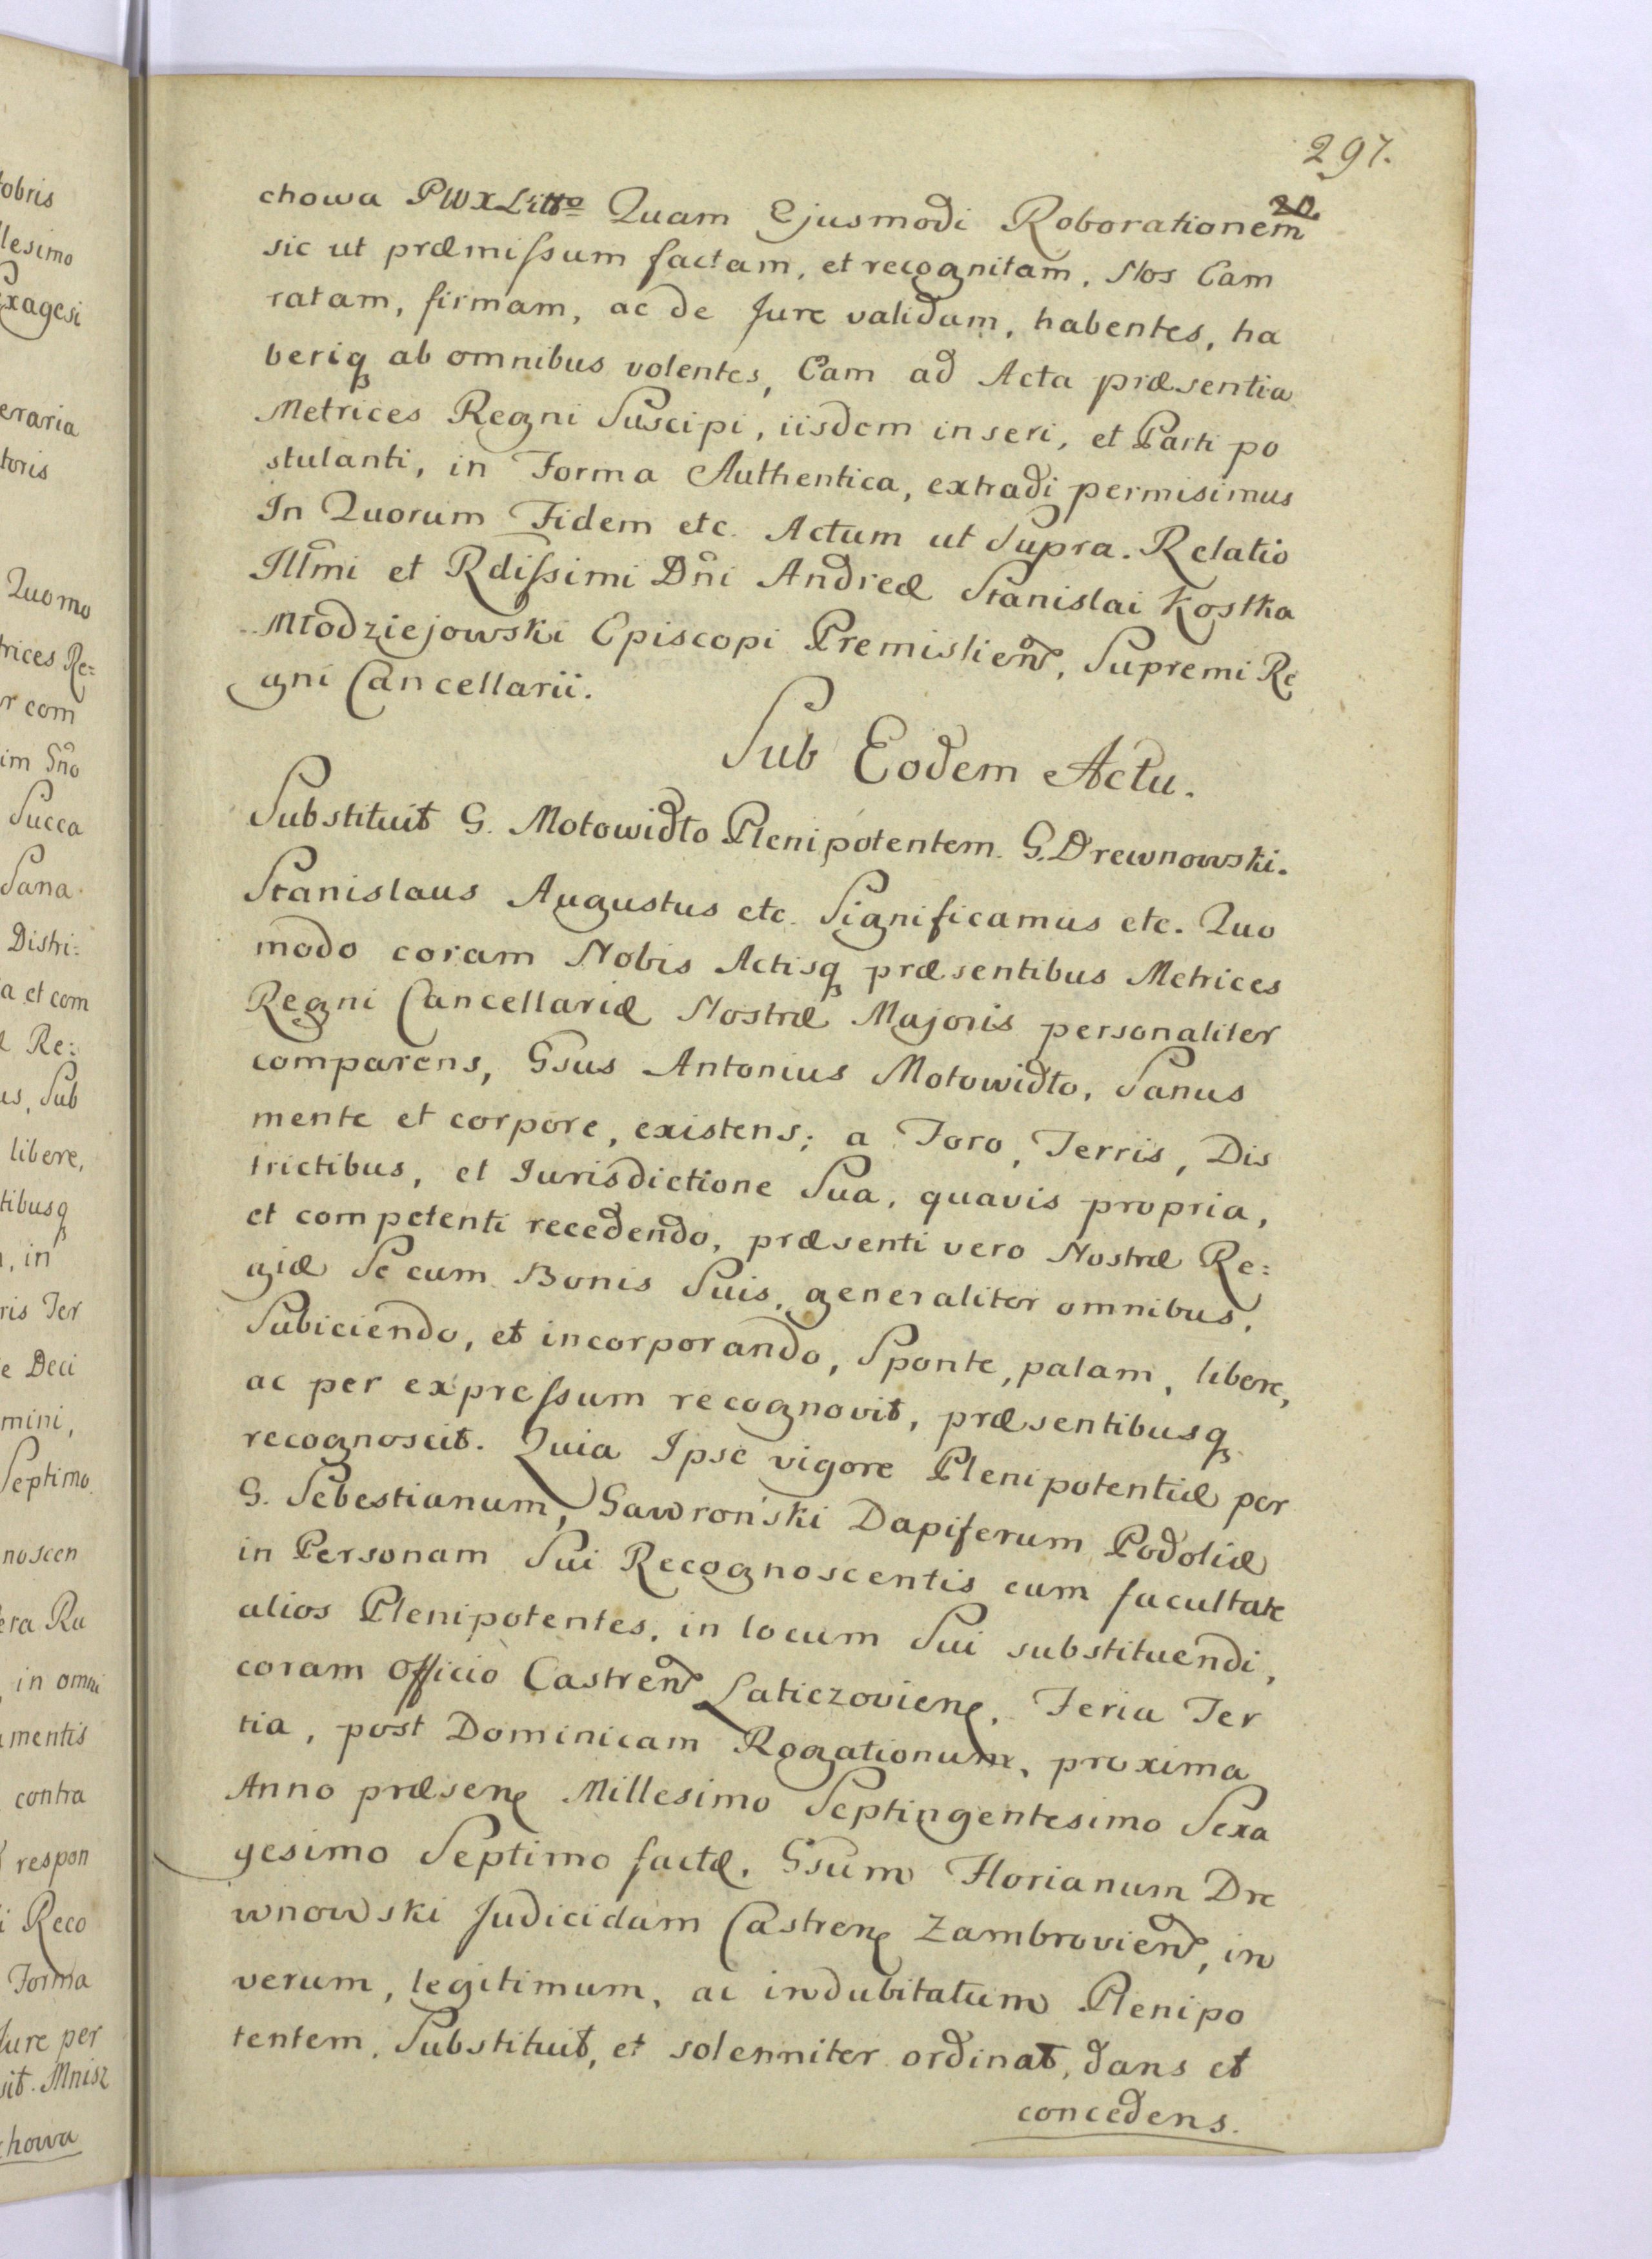 297.
20.
chowa PWXLitto Quam Ejusmodi Roborationem
sic ut præmissum factam, et recognitam, Nos Eam
ratam, firmam, ac de Jure validam, habentes, ha
beriq ab omnibus volentes, Eam ad Acta præsentia
Metrices Regni Suscipi, iisdem inseri, et Parti po
stulanti, in Forma Authentica, extradi permisimus
In Quorum Fidem etc. Actum ut Supra. Relatio
Illmi et Rdissimi Dni Andreæ Stanislai Kostka
Młodziejowski Episcopi Premislien, Supremi Re
gni Cancellarii.
Sub Eodem Actu.
Substituit G. Motowidło Plenipotentem G. Drewnowski.
Stanislaus Augustus etc. Significamus etc. Quo
modo coram Nobis Actisq præsentibus Metrices
Regni Cancellariæ Nostræ Majoris personaliter
comparens, Gsus Antonius Motowidło, Sanus
mente et corpore, existens; a Foro, Terris, Dis
trictibus, et Iurisdictione Sua, quavis propria,
et competenti recedendo, præsenti vero Nostræ Re:
giæ Se cum Bonis Suis, generaliter omnibus,
Subiciendo, et incorporando, Sponte, palam, libere,
ac per expressum recognovit, præsentibusq
recognoscit. Quia Ipse vigore Plenipotentiæ per
G. Sebestianum, Gawroński Dapiferum Podoliæ
in Personam Sui Recognoscentis cum facultate
alios Plenipotentes, in locum Sui substituendi,
coram Officio Castren Laticzovien, Feria Ter
tia, post Dominicam Rogationum, proxima
Anno præsen Millesimo Septingentesimo Sexa
gesimo Septimo factæ, Gsum Florianum Dre
wnowski Judicidam Castren Zambrovien, in
verum, legitimum, ac indubitatum Plenipo
tentem, Substituit, et solenniter ordinat, dans et
concedens.